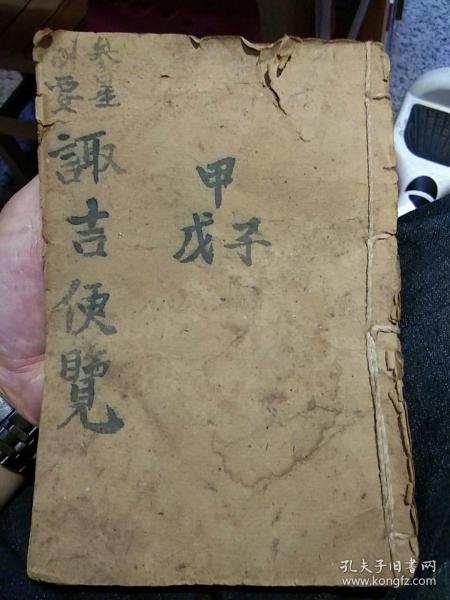 參星
要
諏吉便覽
甲
戊子
孔夫子旧书网
www.kongfz.com